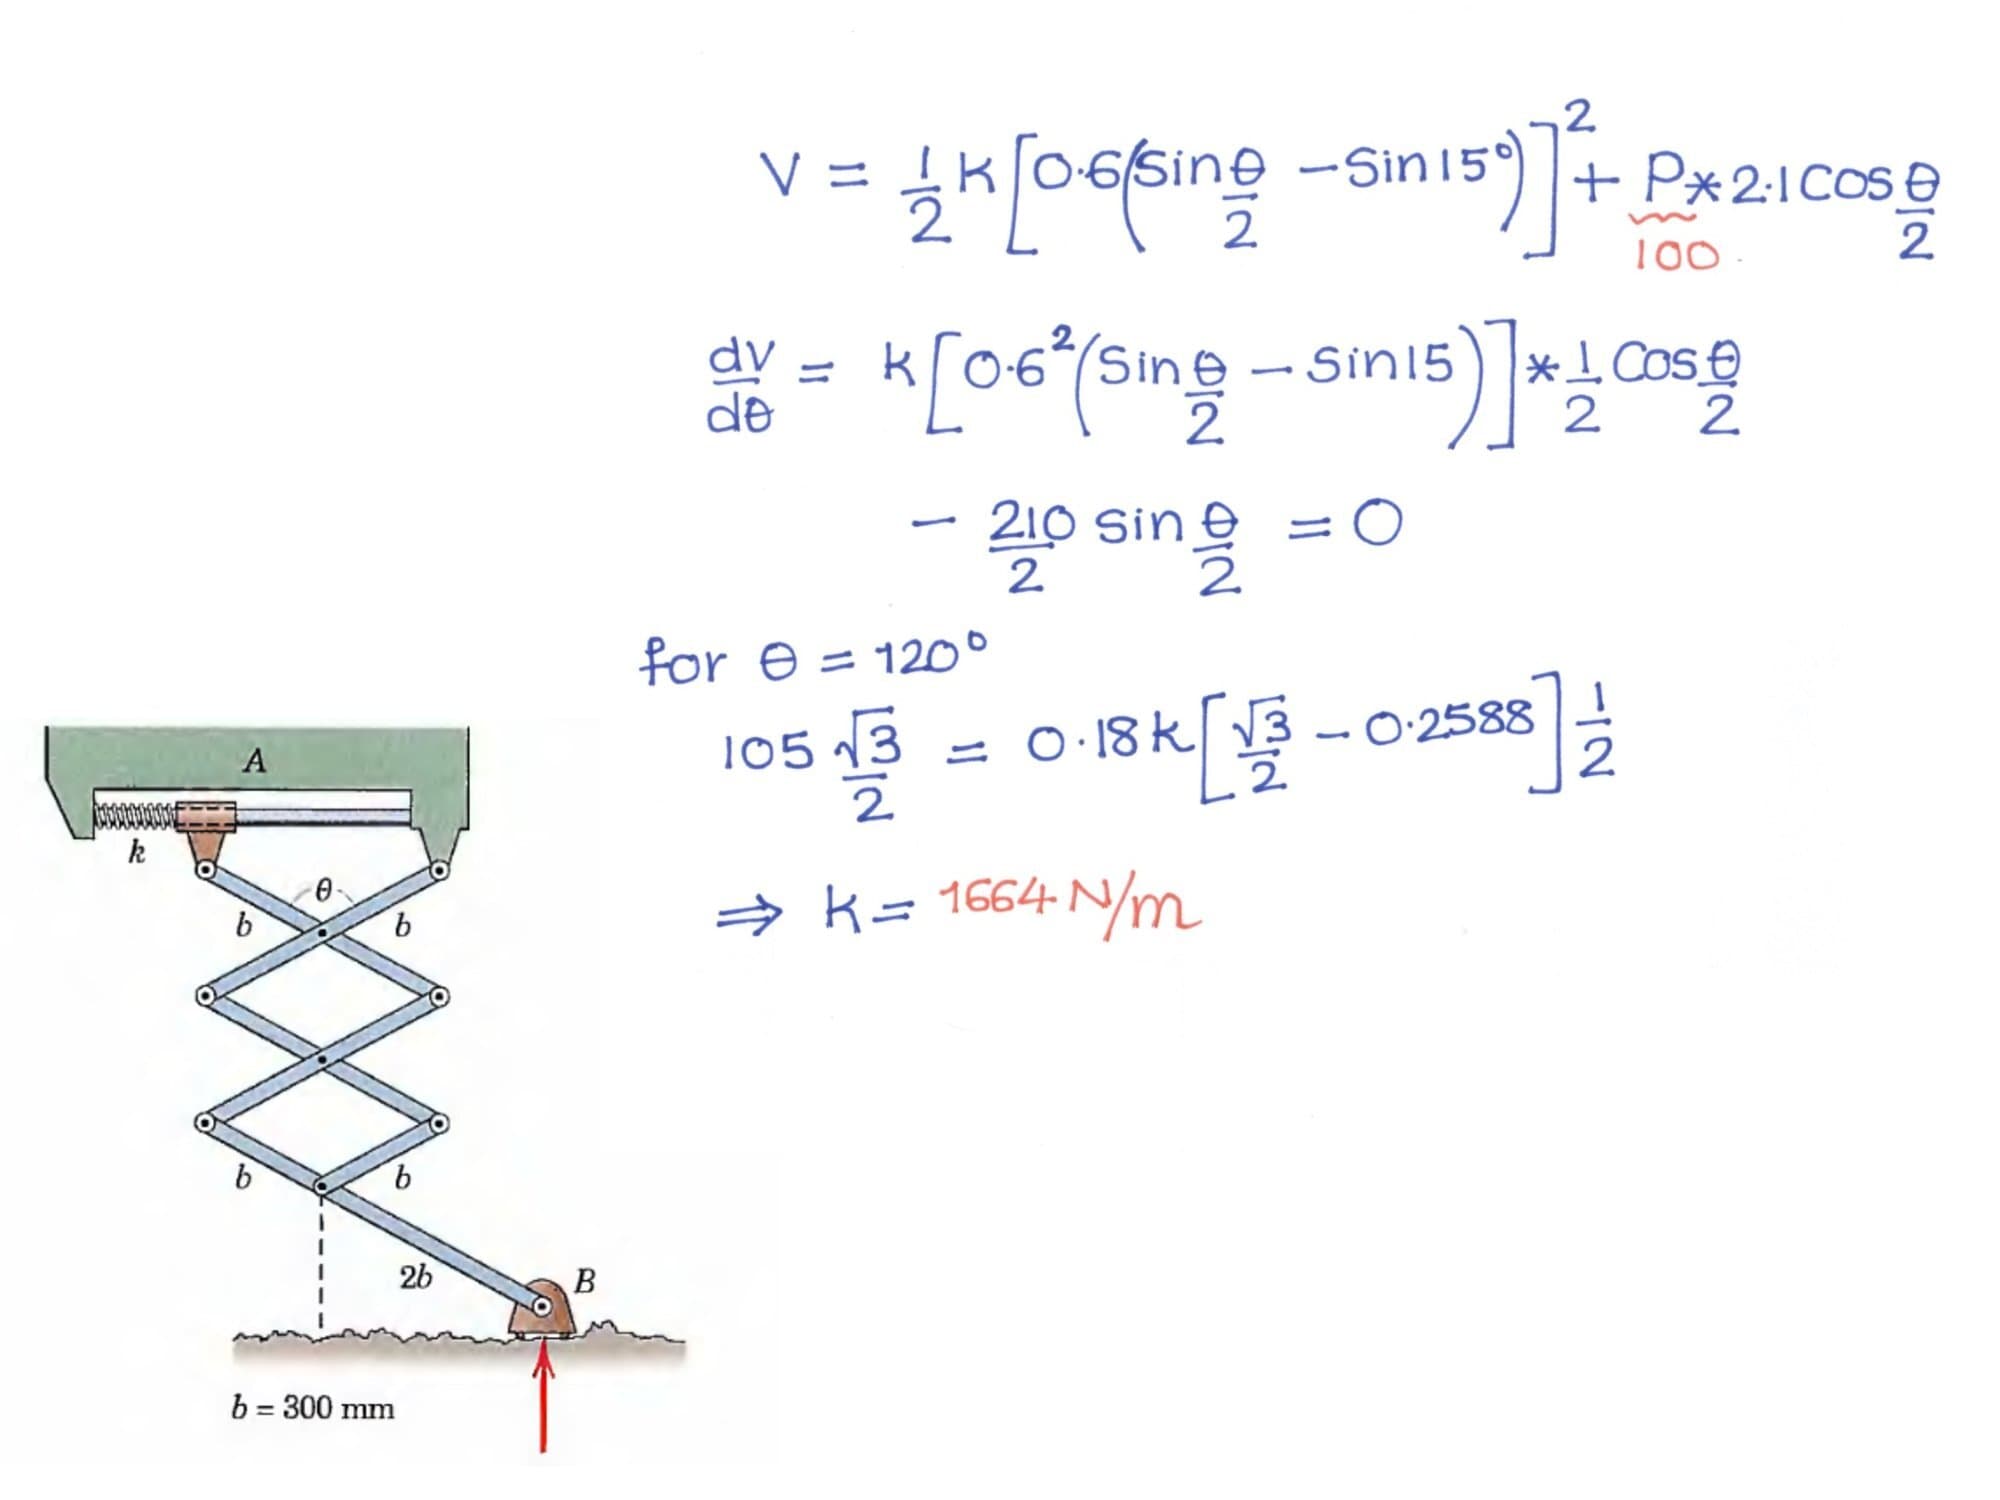 V = 1/2 k[0.6(Sin θ/2 - Sin15°)]² + P*2.1cos θ/2
100
dv/dθ = k[0.6²(Sin θ/2 - Sin15)]*1/2 Cos θ/2
- 210/2 sin θ/2 = 0
for θ = 120°
105 √3/2 = 0.18k[√3/2 - 0.2588]1/2
⇒ k = 1664 N/m
A
k
θ
b b
b b
2b
B
b = 300 mm